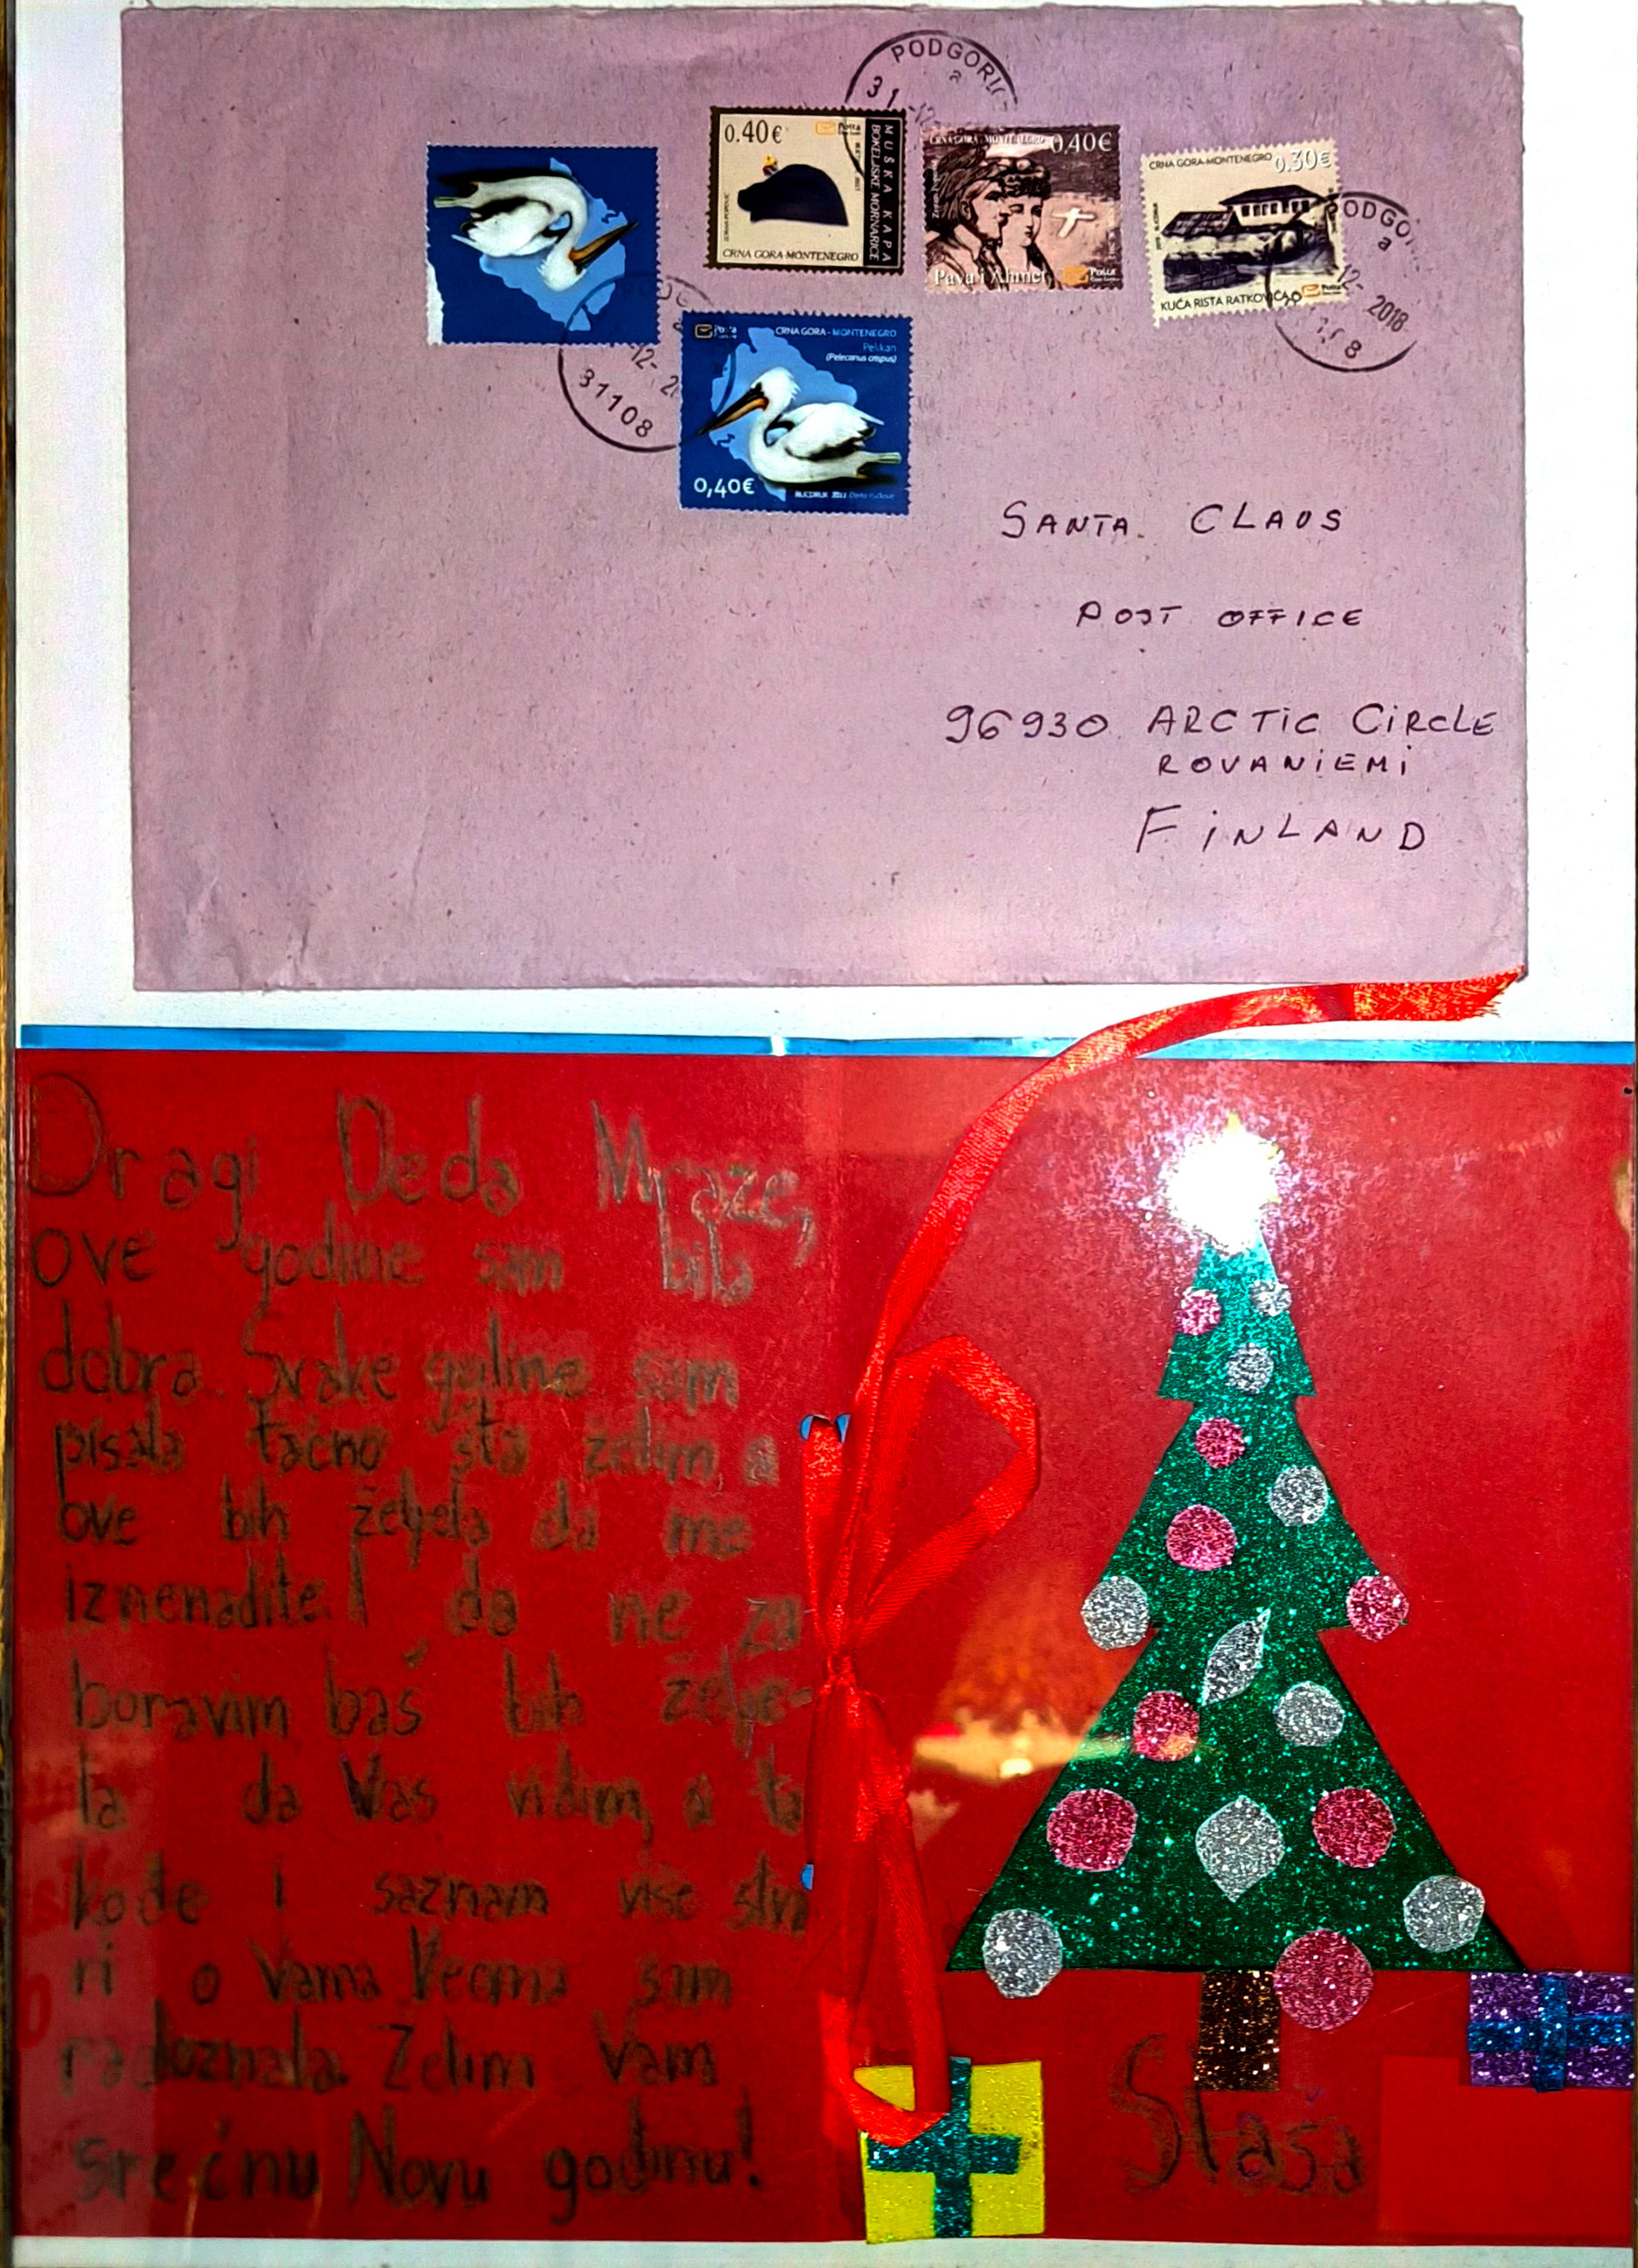 PODGORIC
a
31
0.40€
Pošta
MUŠKA KAPA
BOKELJSKE MORNARICE
CRNA GORA-MONTENEGRO
CRNA GORA-MONTENEGRO
0,40€
Pava i Ahmet
Pošta
CRNA GORA-MONTENEGRO
0.30€
KUĆA RISTA RATKOVIĆA
Pošta
PODGO
a
12- 2018
8
12- 2
31108
Pošta
CRNA GORA - MONTENEGRO
Pelikan
(Pelecanus crispus)
0,40€
SANTA CLAUS
POST OFFICE
96930 ARCTIC CIRCLE
ROVANIEMI
FINLAND
Dragi Deda Mraze,
ove godine sam bila
dobra. Svake godine sam
pisala tačno šta želim, a
ove bih željela da me
iznenadite. I da ne za
boravim baš bih želje-
la da Vas vidim, a ta
kođe i saznam više stva
ri o Vama. Veoma sam
radoznala. Želim Vam
srećnu Novu godinu!
Staša